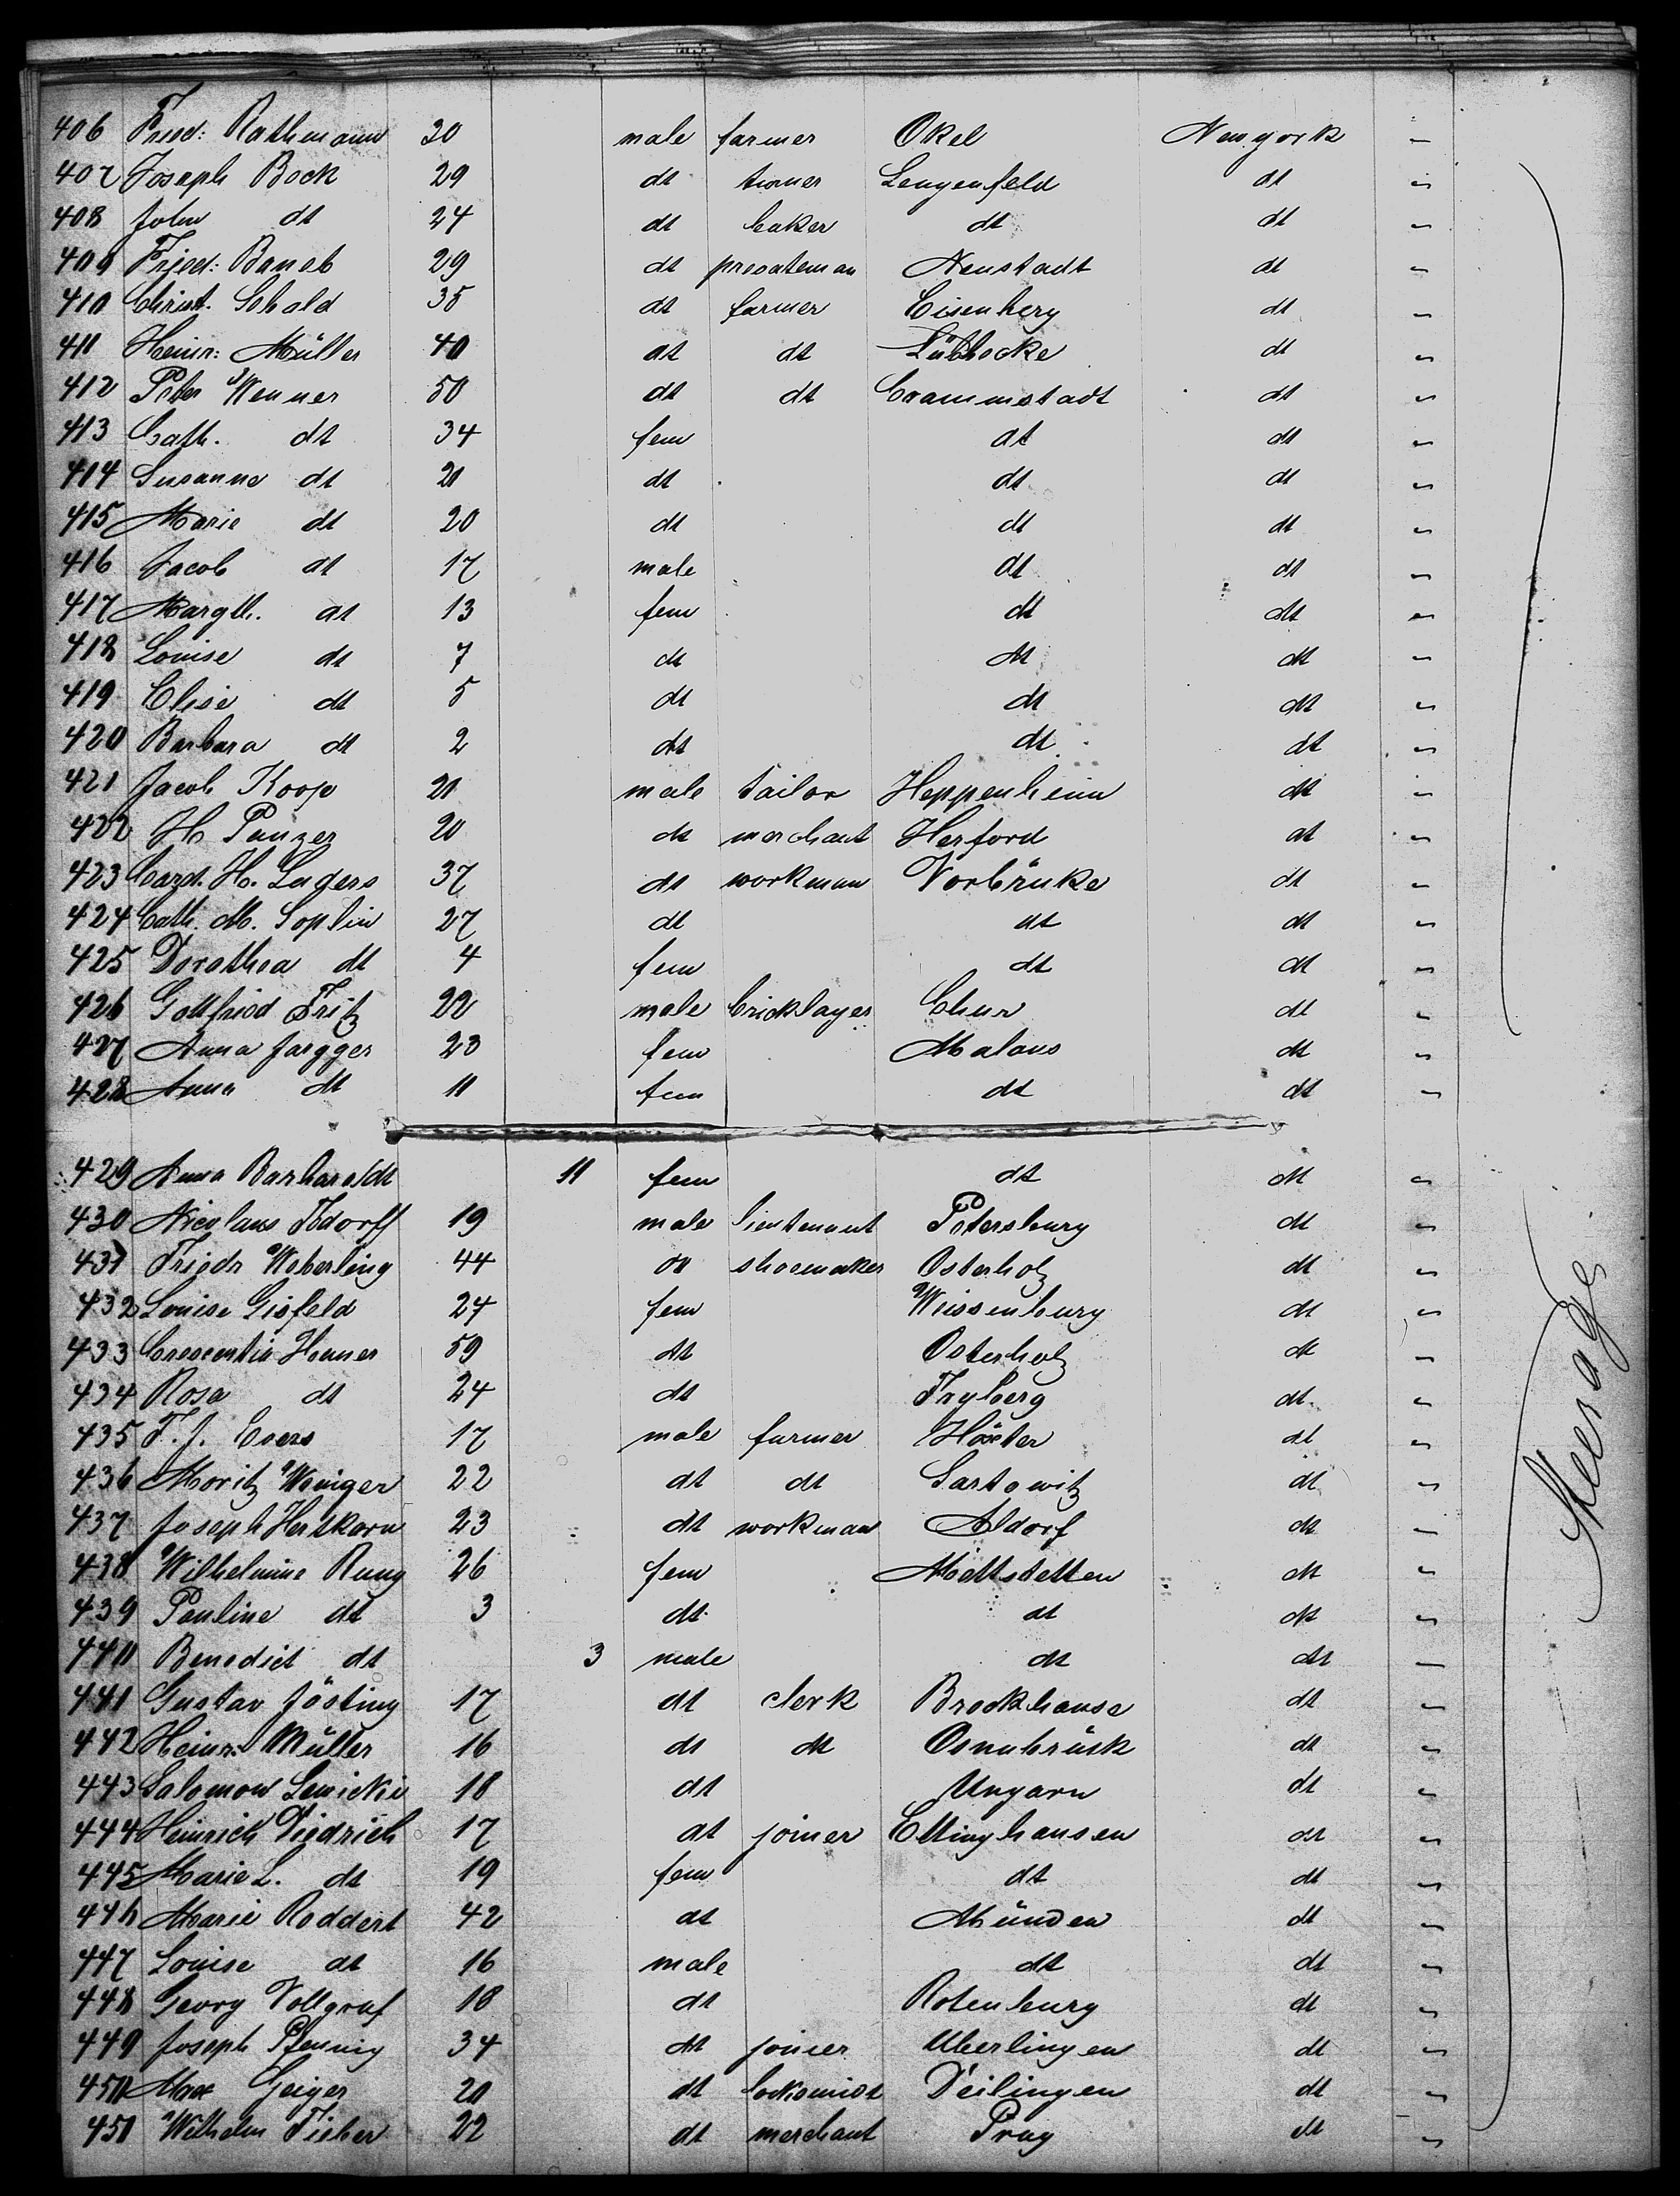 406 Fried: Rathmann 30 male farmer Okel Newyork "
407 Joseph Bock 29 dt turner Lengenfeld dt "
408 John dt 24 dt baker dt dt "
409 Fried: Baneb 29 dt privateman Neustadt dt "
410 Christ. Sebald 35 dt farmer Eisenberg dt "
411 Heinr: Müller 40 dt dt Lübbecke dt "
412 Peter Wenner 50 dt dt Crammstadt dt "
413 Cath. dt 34 fem dt dt "
414 Susanne dt 21 dt dt dt "
415 Marie dt 20 dt dt dt "
416 Jacob dt 17 male dt dt "
417 Margth. dt 13 fem dt dt "
418 Louise dt 7 dt dt dt "
419 Elise dt 5 dt dt dt "
420 Barbara dt 2 dt dt dt "
421 Jacob Koop 21 male tailor Heppenheim dt "
422 H Panzer 20 dt merchant Herford dt "
423 Card. H. Luders 37 dt workman Vorbrüke dt "
424 Cath. M. Soplin 27 dt dt dt "
425 Dorothea dt 4 fem dt dt "
426 Gottfried Fritz 22 male bricklayer Chur dt "
427 Anna Jargger 23 fem Malans dt "
428 Anna dt 11 fem dt dt "
429 Anna Barharoldt 11 fem dt dt "
430 Nicolaus Todorff 19 male lieutenant Petersburg dt "
431 Friedr Weberling 44 dt shoemaker Osterholz dt "
432 Louise Gisfeld 24 fem Weissenburg dt "
433 Crescentia Hemer 59 dt Osterholz dt "
434 Rosa dt 24 dt Fryberg dt "
435 F. J. Evers 17 male farmer Höxter dt "
436 Moritz Weniger 22 dt dt Sartowitz dt "
437 Joseph Herskorn 23 dt workman Aldorf dt "
438 Wilhelmine Rung 26 fem Mettstetten dt "
439 Pauline dt 3 dt dt dt "
440 Benedict dt 3 male dt dt "
441 Gustav Jösting 17 dt clerk Brockhause dt "
442 Heinr: Müller 16 dt dt Osnabrück dt "
443 Salomon Lewickie 18 dt Ungarn dt "
444 Heinrich Diedrich 17 dt joiner Ettinghausen dt "
445 Marie L. dt 19 fem dt dt "
446 Marie Roddert 42 dt Münden dt "
447 Louise dt 16 male dt dt "
448 Georg Vollgraf 18 dt Rotenburg dt "
449 Joseph Pfennig 34 dt joiner Uberlingen dt "
450 Max Geiger 20 dt locksmidt Deilingen dt "
451 Wilhelm Fieber 22 dt merchant Prag dt "
Steerage